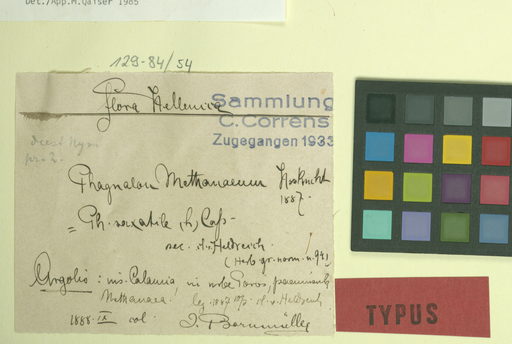 Det./App.M.Qaiser 1985
129-84/54
Flora Hellenica
Sammlung
C. Correns
Zugegangen 1933
Phagnalon Methanaeum Hausknecht
1887.
= Ph. saxatile (L) Cass.
sec. d. v. Heldreich
(Herb. gr. norm. n. 
Argolis: ins. Calauria in urbe Poros, peninsula
Methanara! leg. 1887 d. v. Heldreich
1888. IX col. J. Bornmüller
TYPUS